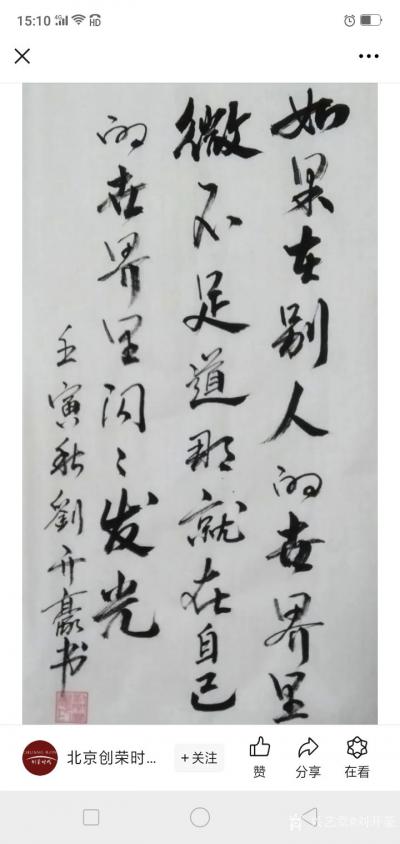 15:10 4G HD
如果在别人的世界里
微不足道那就在自己
的世界里闪〻发光
壬寅秋劉开豪书
北京创荣时...
+关注
赞 分享 在看